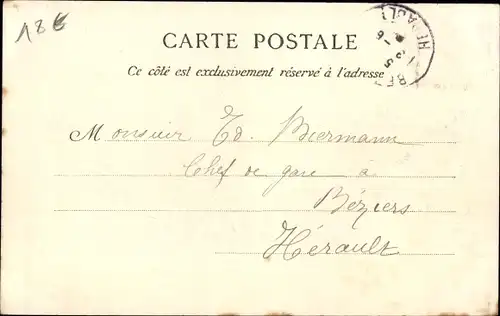 18€
CARTE POSTALE
HÉRAULT
Ce côté est exclusivement réservé à l'adresse
Monsieur Ed. Biermann
Chef de gare à
Béziers
Hérault